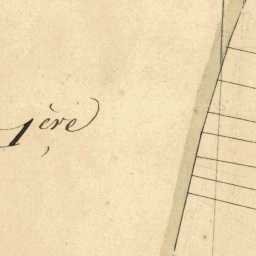 1ère